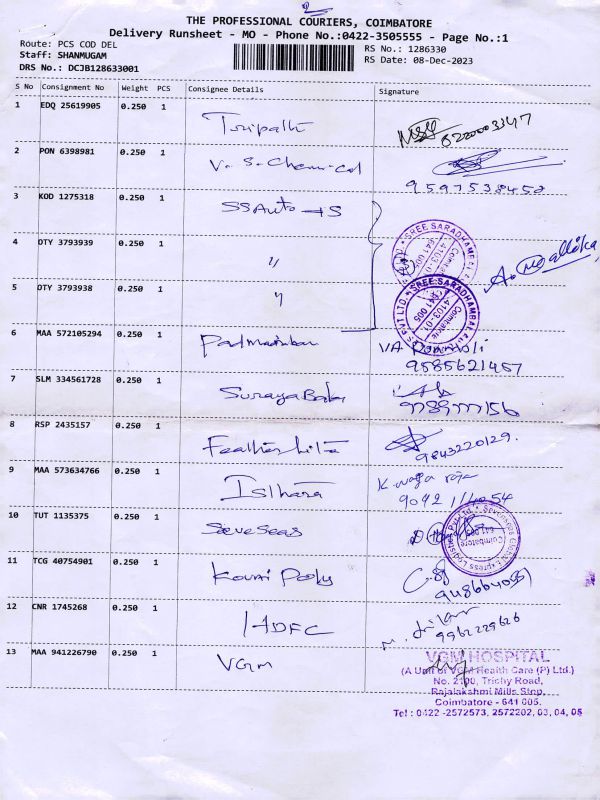 2
THE PROFESSIONAL COURIERS, COIMBATORE
Delivery Runsheet - MO - Phone No.:0422-3505555 - Page No.:1
Route: PCS COD DEL
RS No.: 1286330
Staff: SHANMUGAM
RS Date: 08-Dec-2023
DRS No.: DCJB128633001
S No Consignment No Weight PCS Consignee Details Signature
1 EDQ 25619905 0.250 1 Tiripathi 6220003347
2 PON 6398981 0.250 1 V. S. Chemical
9597538452
3 KOD 1275318 0.250 1 SS Auto
4 OTY 3793939 0.250 1 "
A. Mallika
5 OTY 3793938 0.250 1 "
SREE SARADHAMBAL
6 MAA 572105294 0.250 1 Padmanaban
9585621457
7 SLM 334561728 0.250 1 Suraya Babu
8 RSP 2435157 0.250 1 Feather Lite
9843220129.
9 MAA 573634766 0.250 1 Isthara K. naga raja
10 TUT 1135375 0.250 1 Seve Seas
Coimbatore
11 TCG 40754901 0.250 1 Kouni Poly
12 CNR 1745268 0.250 1 HDFC
9962229626
13 MAA 941226790 0.250 1 VGM
VGM HOSPITAL
(A Unit of VGM Health Care (P) Ltd.)
No. 2100, Trichy Road,
Rajalakshmi Mills Stop,
Coimbatore - 641 005.
Tel : 0422 -2572573, 2572202, 03, 04, 05